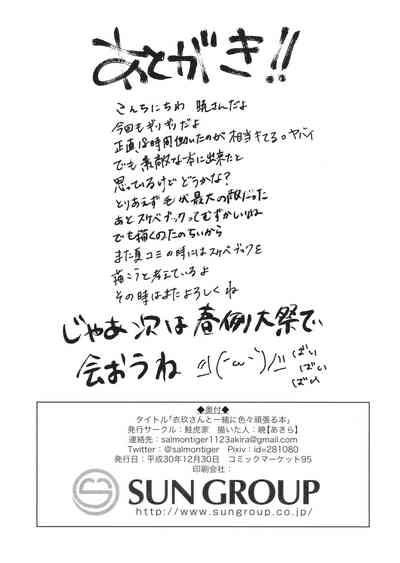 あとがき!!
こんちにちわ 暁さんだよ
今回もギリギリだよ
正直18時間働いたのが相当キてる。ヤバイ
でも素敵な本に出来たと
思っているけどどうかな?
とりあえず毛が最大の敵だった
あとスケベブックってむずかしいね
でも描くのたのちいから
また夏コミの時にはスケベブックを
描こうと考えているよ
その時はまたよろしくね
じゃあ次は春例大祭で
会おうね ('・ω・`)
ばい
ばい
ばい
◆奥付◆
タイトル『衣玖さんと一緒に色々頑張る本』
発行サークル:鮭虎家 描いた人:暁【あきら】
連絡先:salmontiger1123akira@gmail.com
Twitter:@salmontiger Pixiv:id=281080
発行日:平成30年12月30日 コミックマーケット95
印刷会社:
SUN GROUP
http://www.sungroup.co.jp/